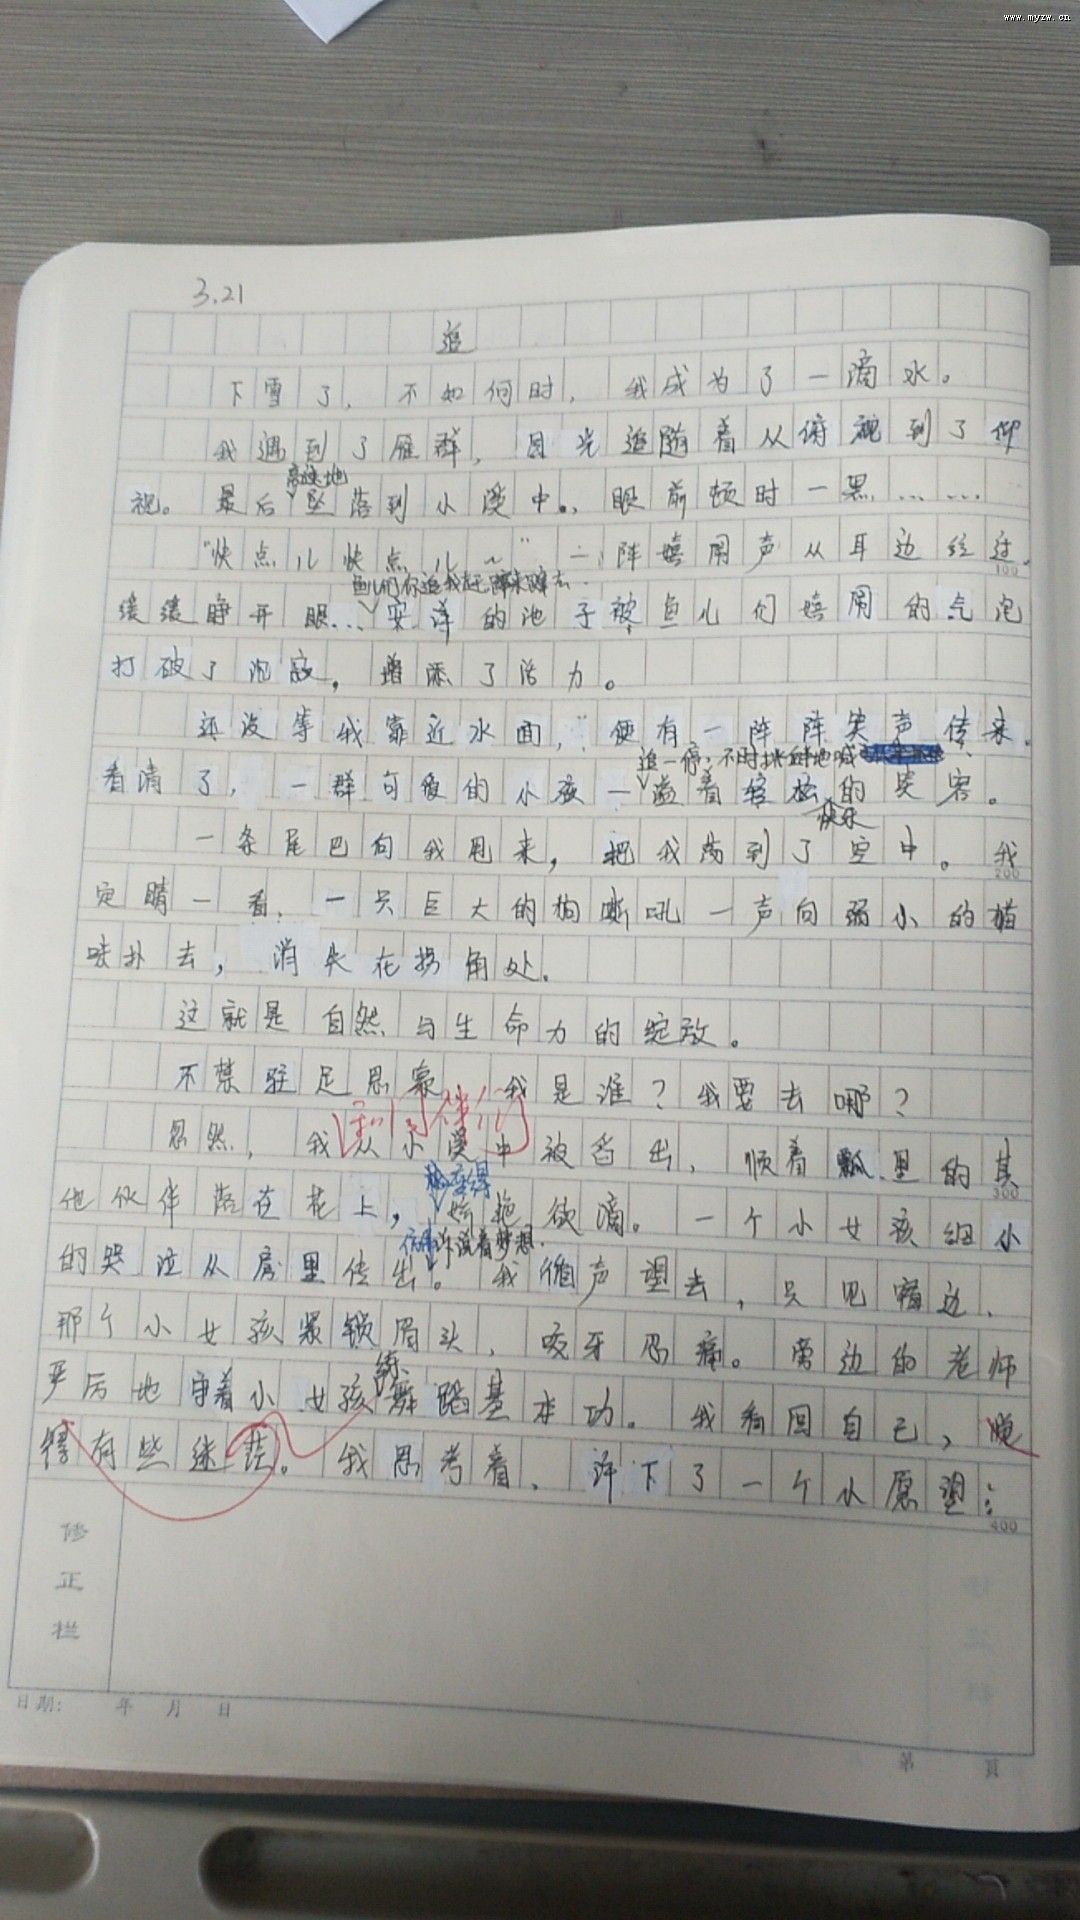 www.myzw.cn
3.21
追
下雪了，不如何时，我成为了一滴水。
我遇到了雁群，目光追随着从俯视到了仰
高速地
视。最后坠落到小溪中。，眼前顿时一黑……
“快点儿快点儿~”一阵嬉闹声从耳边经过，
100
鱼儿们你追我赶
缓缓睁开眼…安详的池子被鱼儿们嬉闹的气泡
打破了沉寂，增添了活力。
还没等我靠近水面，便有一阵阵笑声传来。
追一停，不时挑衅地喊
看清了，一群可爱的小孩一溢着轻松的笑容。
快乐
一条尾巴向我甩来，把我荡到了空中。我
200
定睛一看，一只巨大的狗嘶吼一声向弱小的猫
咪扑去，消失在拐角处。
这就是自然与生命力的绽放。
不禁驻足思索，我是谁？我要去哪？
和同伴们
忽然，我从小溪中被舀出，顺着瓢里的其
300
他伙伴落在花上，娇艳欲滴。一个小女孩细小
诉说着梦想.
的哭泣从房里传出。我循声望去，只见窗边，
那个小女孩紧锁眉头，咬牙忍痛。旁边的老师
练
严厉地守着小女孩舞蹈基本功。我看回自己，晓
得有些迷茫。我思考着，许下了一个小愿望：
400
修正栏
日期： 年 月 日
第 页